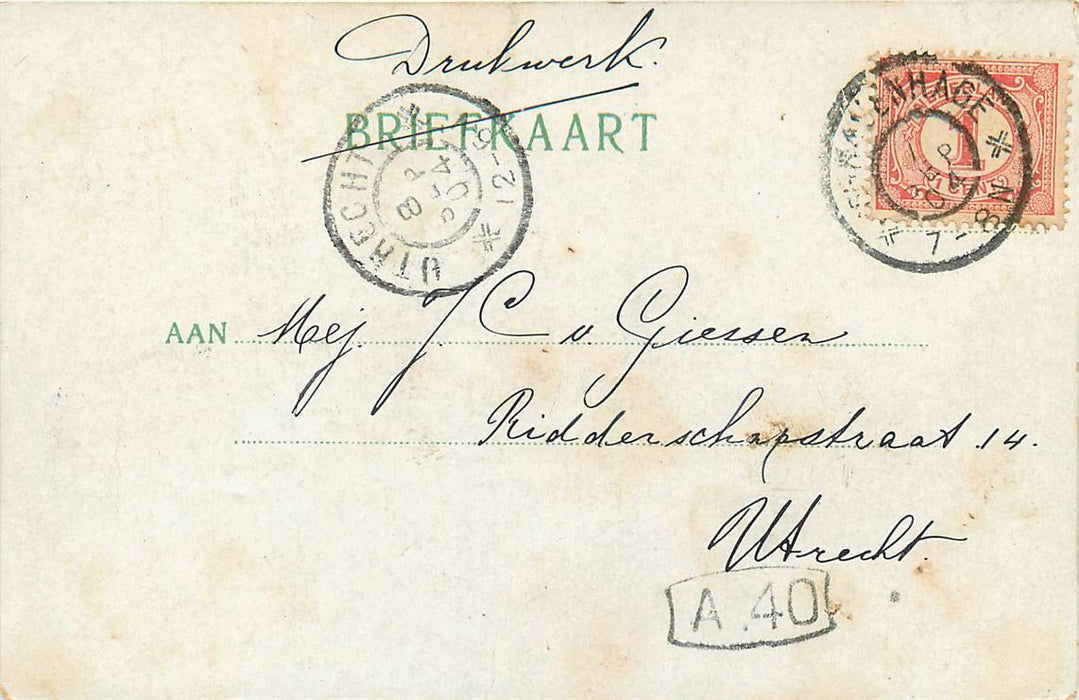 Drukwerk.
BRIEFKAART
UTRECHT
12-
8
'S-GRAVENHAGE
7-8N
1
CENT
AAN Mej. J. C v. Giessen
Ridderschapstraat 14.
Utrecht.
A.40